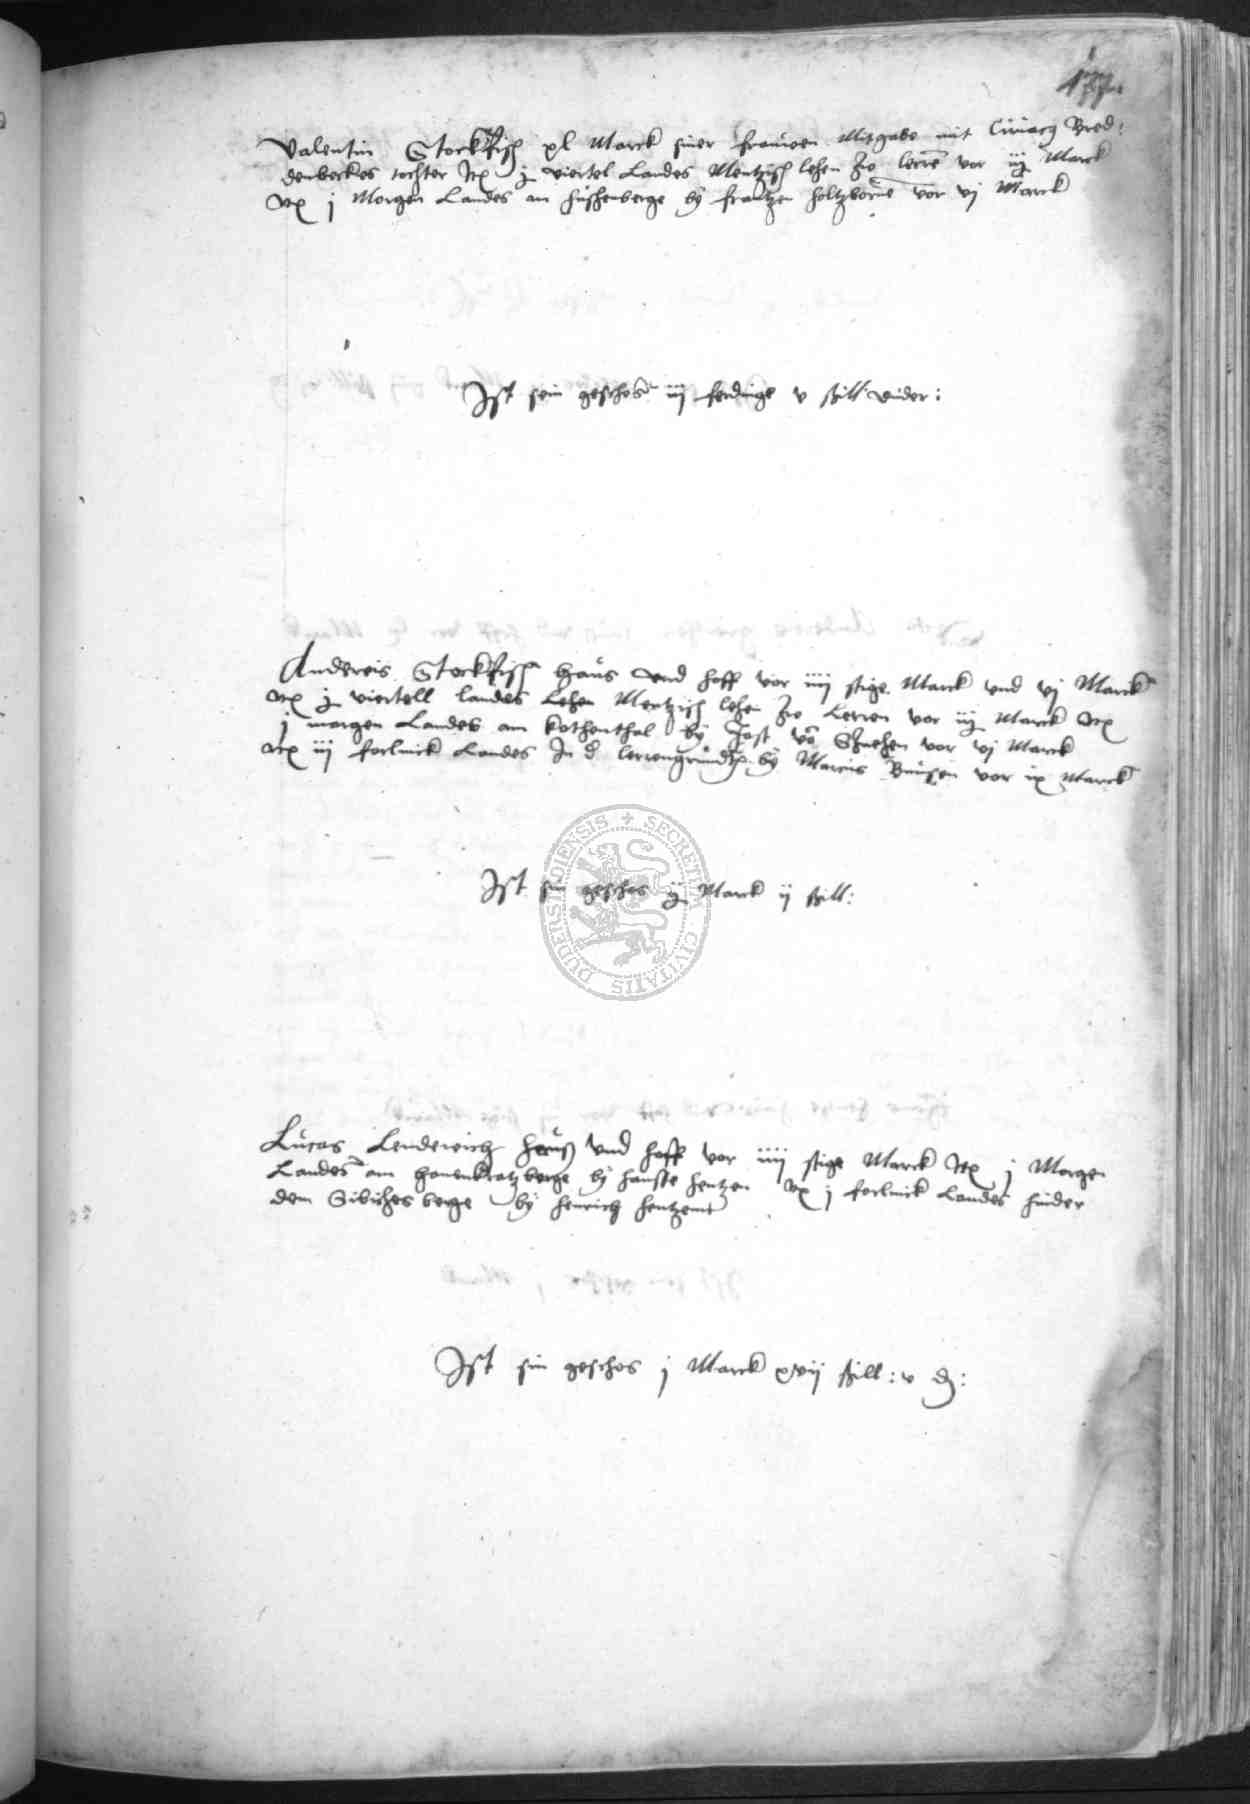 177
Valentin Stockfisch xl Marck siner frauwen Mitgabe mit Ciriacy Bred:
denbeckes tochter Itx j viertel Landes Mentzisch lehen zo lerre vor iij Marck
Itx j Morgen Landes am hushenberge by frantzen holtzborne vor vj Marck
Ist sein geschos iij ferdinge v schill: under:
Andereis Stockfisch Haus und hoff vor iiij stige Marck und vj Marck
Itx j viertell landes Lehen Mentzisch lehen zo Lerren vor iij Marck Itx
j morgen Landes am kothenthal by Jost vo Schnehen vor vj Marck
Itx iij forlinck Landes In d lerrengrundt by Marcus Bausen vor ix Marck
Ist sin geschos ij Marck ij schill:
Lucas Lenderich Haus und hoff vor iiij stige Marck Itx j Morgen
Landes am hanenkratzberge by hanste hentzen Itx j forlinck Landes hinder
dem Sibiches berge by henrich hentzent
Ist sin geschos j Marck xvij schill: v d:
DUDERSTADIENSIS SECRETUM CIVITATIS